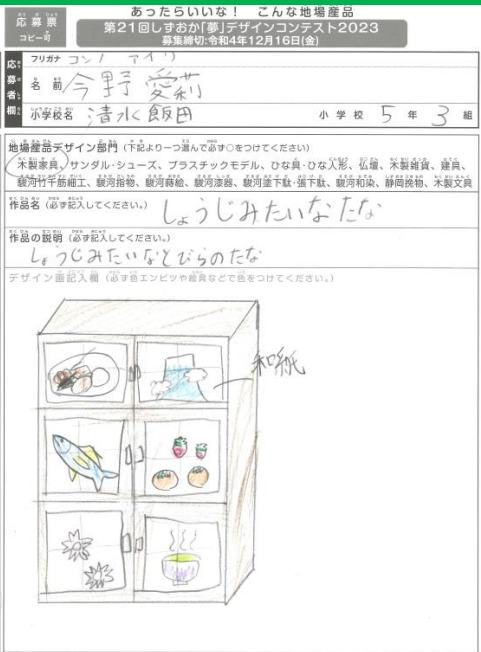 あったらいいな! こんな地場産品
応募票
コピー可
第21回しずおか「夢」デザインコンテスト2023
募集締切:令和4年12月16日(金)
応募者欄
フリガナ コンノ アイリ
名前 今野 愛莉
小学校名 清水飯田 小学校 5年 3組
地場産品デザイン部門(下記より一つ選んで必ず○をつけてください)
木製家具、サンダル・シューズ、プラスチックモデル、ひな具・ひな人形、仏壇、木製雑貨、建具、
駿河竹千筋細工、駿河指物、駿河蒔絵、駿河漆器、駿河塗下駄・張下駄、駿河和染、静岡挽物、木製文具
作品名(必ず記入してください。) しょうじみたいなたな
作品の説明(必ず記入してください。)
しょうじみたいなとびらのたな
デザイン画記入欄(必ず色エンピツや絵具などで色をつけてください。)
和紙